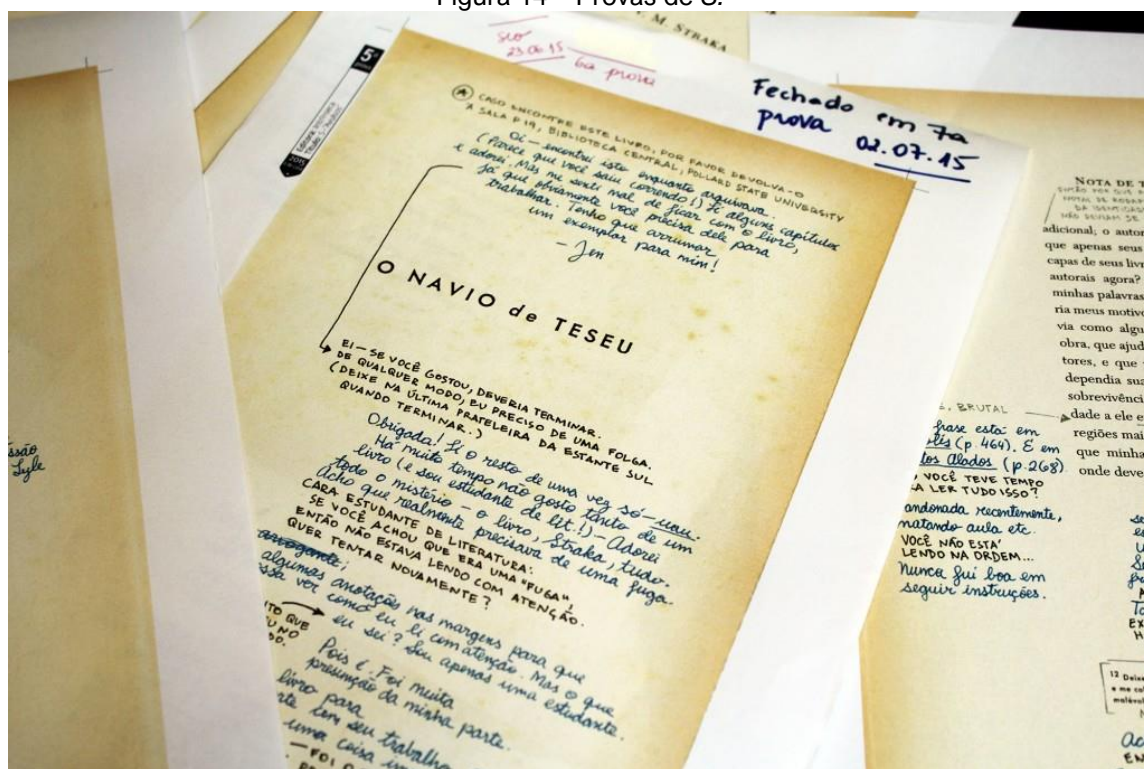 Figura 14 – Provas de S.
M. STRAKA
23.06.15
6a prova
5ª
2015
Fechado em 7a
prova 02.07.15
CASO ENCONTRE ESTE LIVRO, POR FAVOR DEVOLVA-O
À SALA P19, BIBLIOTECA CENTRAL, POLLARD STATE UNIVERSITY
Oi – encontrei isto enquanto arquivava.
(Parece que você saiu correndo!) Li alguns capítulos
e adorei. Mas me senti mal de ficar com o livro,
já que obviamente você precisa dele para
trabalhar. Tenho que arrumar
um exemplar para mim!
– Jen
O NAVIO de TESEU
EI – SE VOCÊ GOSTOU, DEVERIA TERMINAR.
DE QUALQUER MODO, EU PRECISO DE UMA FOLGA.
(DEIXE NA ÚLTIMA PRATELEIRA DA ESTANTE SUL
QUANDO TERMINAR.)
Obrigada! Li o resto de uma vez só – uau.
Há muito tempo não gosto tanto de um
livro (e sou estudante de lit.!) – Adorei
todo o mistério – o livro, Straka, tudo.
Acho que realmente precisava de uma fuga.
CARA ESTUDANTE DE LITERATURA:
SE VOCÊ ACHOU QUE ERA UMA "FUGA",
ENTÃO NÃO ESTAVA LENDO COM ATENÇÃO.
QUER TENTAR NOVAMENTE?
arrogante;
algumas anotações nas margens para que
ssa ver como eu li com atenção. Mas o que
eu sei? Sou apenas uma estudante.
NTO QUE
EU NO
DO.
Pois é. Foi muita
presunção da minha parte.
livro para
rte tem seu trabalho
uma coisa
– FOI O
ssão
Lyle
NOTA DE T
adicional; o autor
que apenas seus
capas de seus livr
autorais agora?
minhas palavras
ria meus motivo
via como algu
obra, que ajud
tores, e que
dependia sua
sobrevivênci
dade a ele e
regiões mai
que minha
onde deve
, BRUTAL
frase está em
(p. 464). E em
los Alados (p. 268)
VOCÊ TEVE TEMPO
RA LER TUDO ISSO?
andonada recentemente,
matando aula etc.
VOCÊ NÃO ESTÁ
LENDO NA ORDEM...
Nunca fui boa em
seguir instruções.
12 Deixe
e me col
malévol